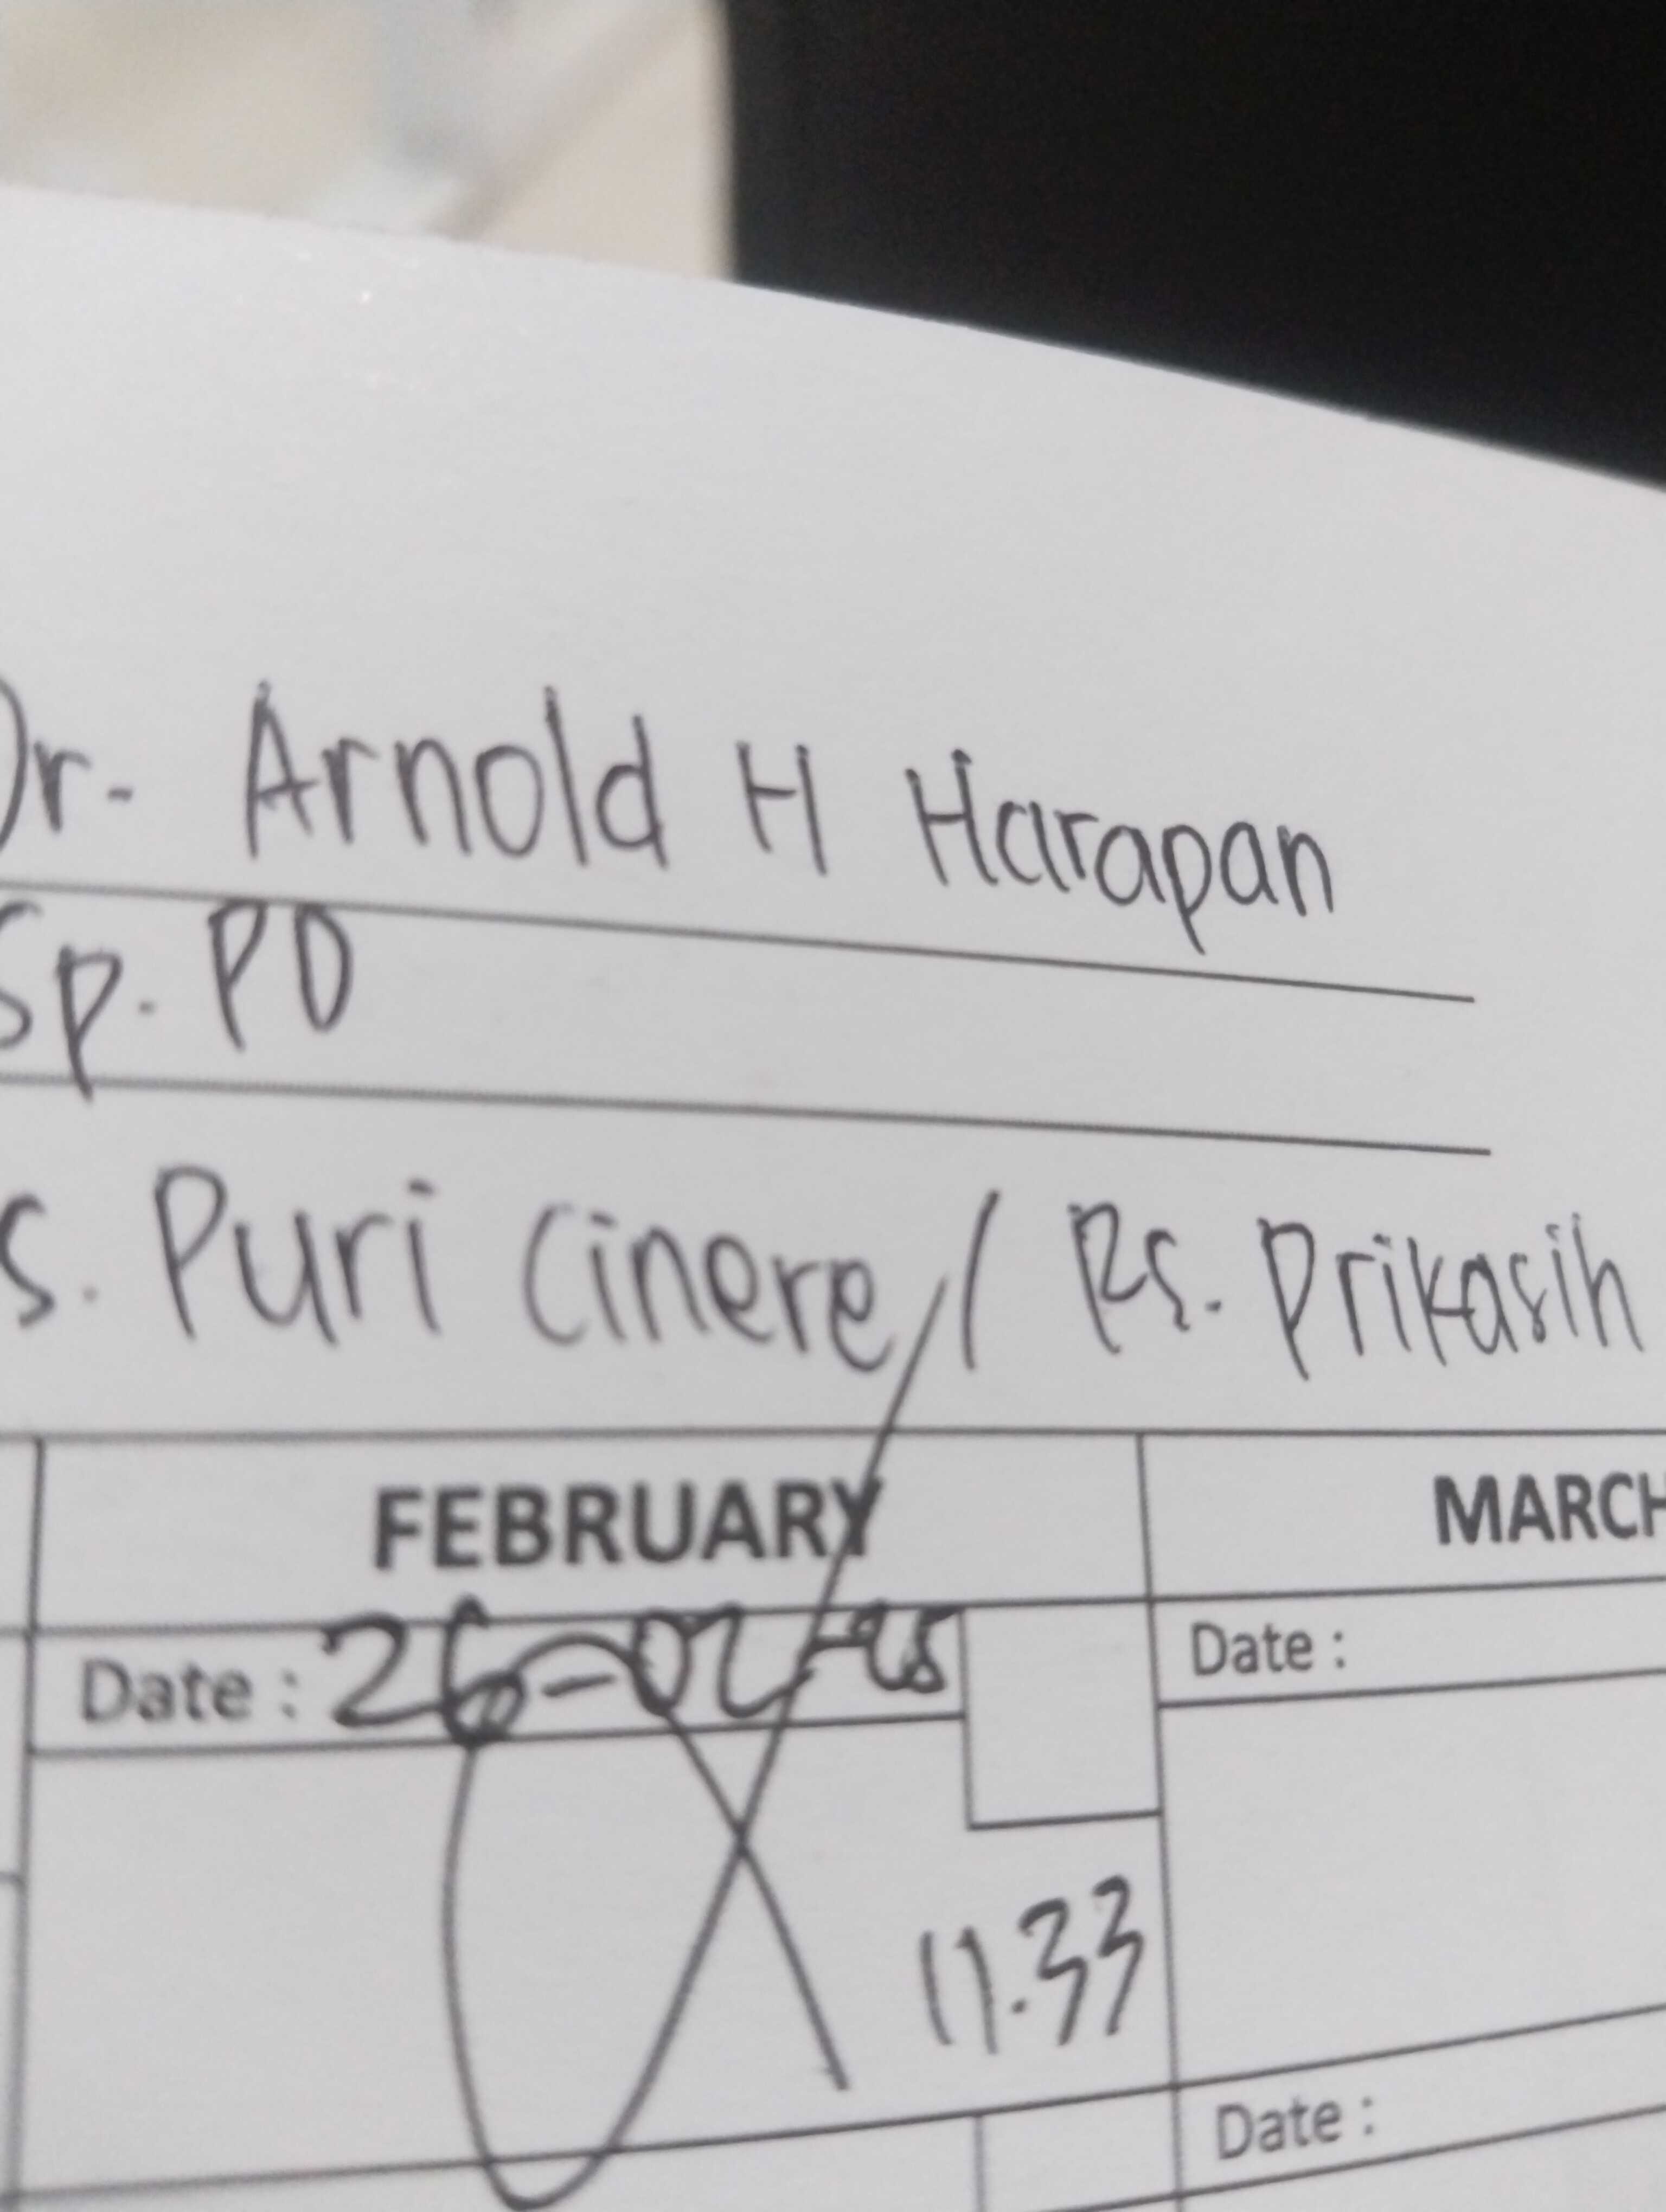 Dr. Arnold H Harapan
Sp. PD
s. Puri Cinere / Rs. Prikasih
FEBRUARY MARCH
Date : 26-02-25 Date :
11.33
Date :